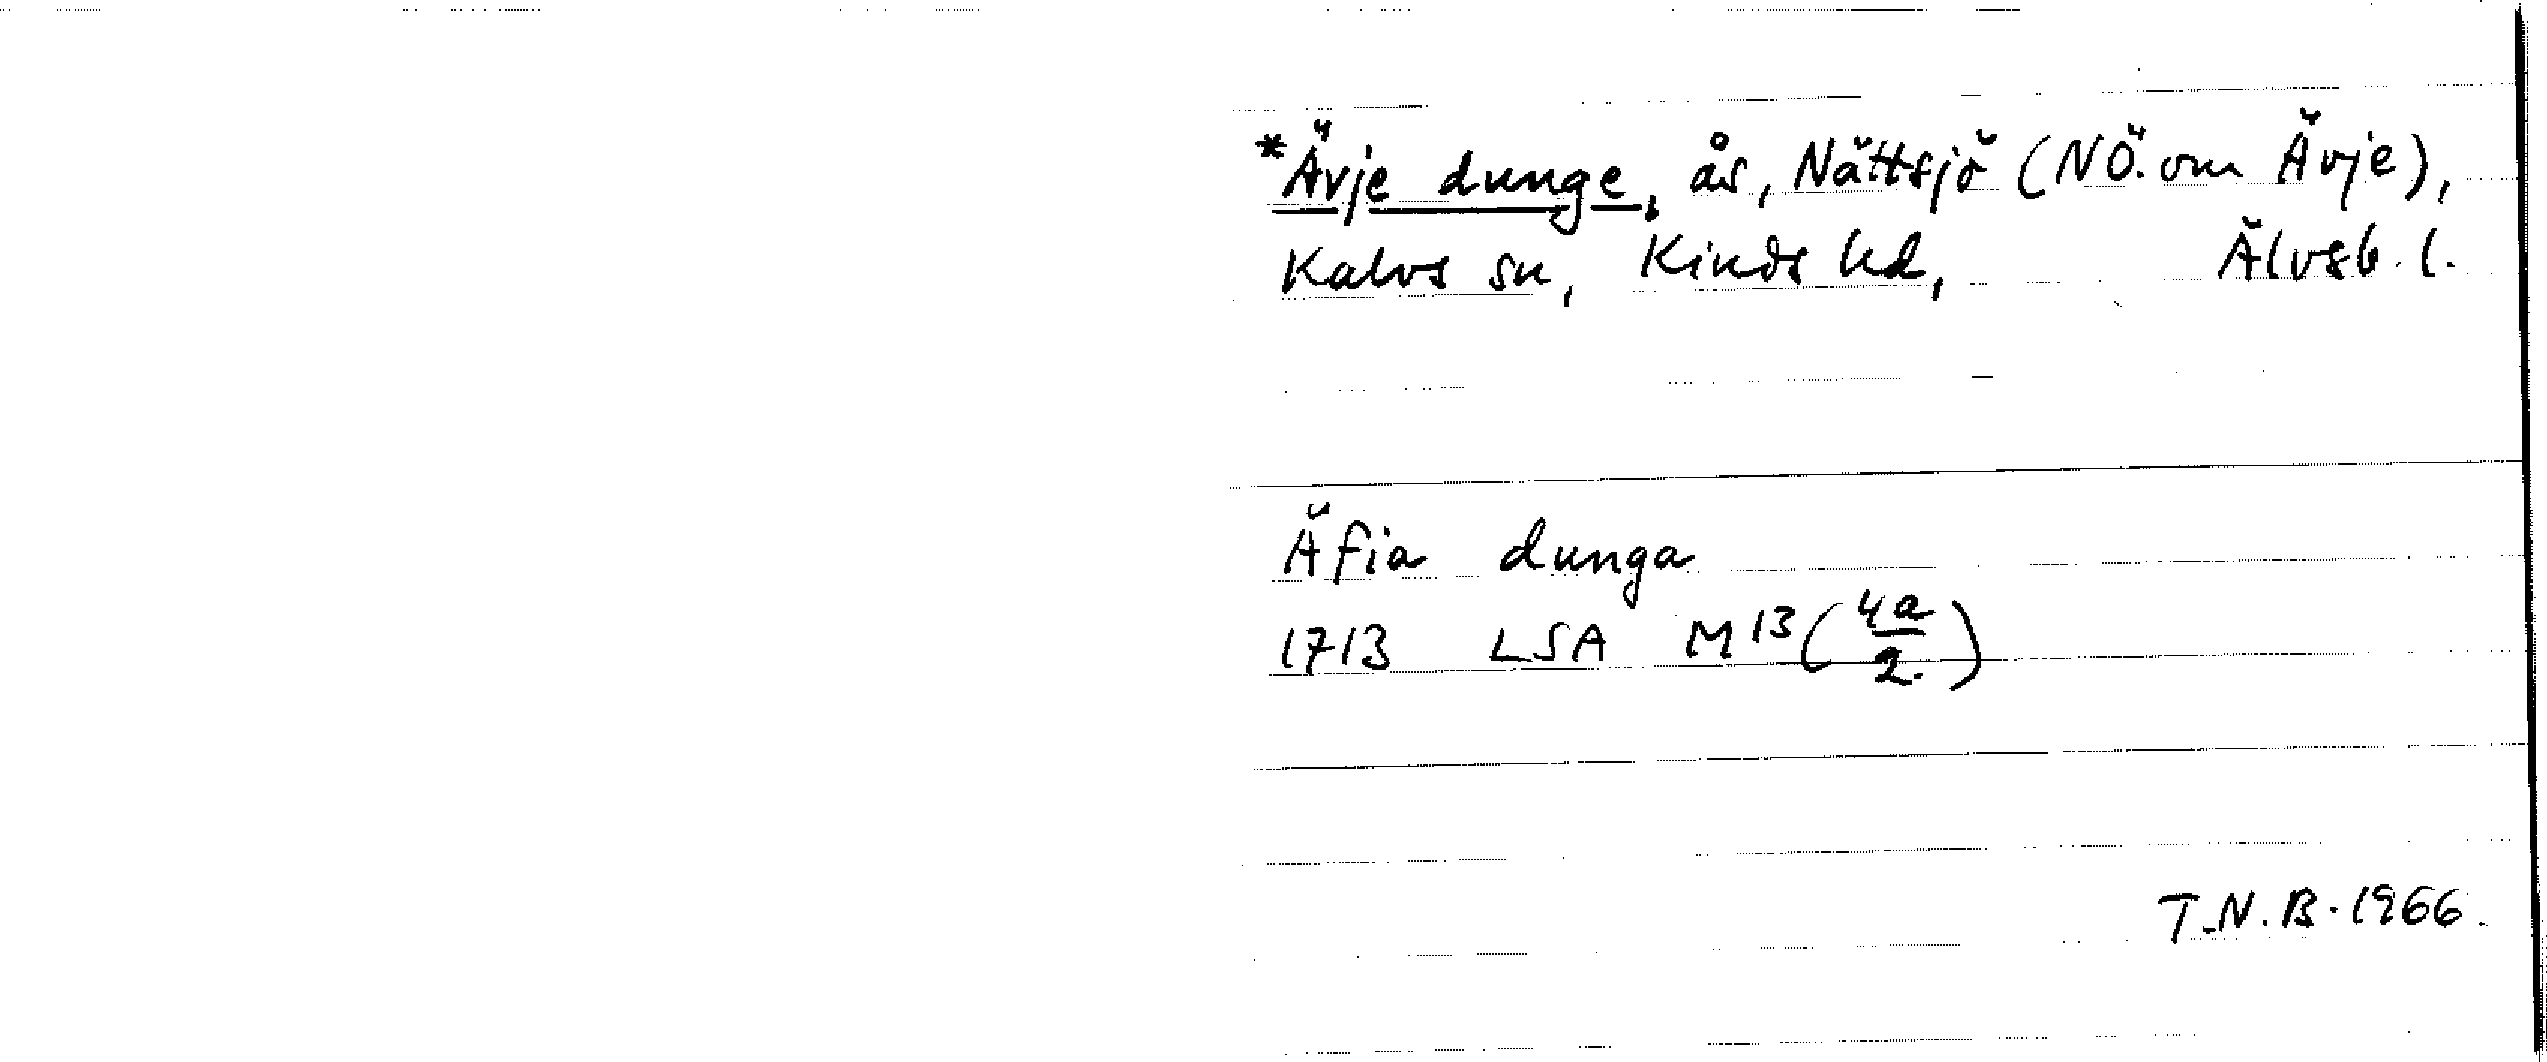 *Ävje dunge, ås, Nättsjö (NÖ. om Ävje),
Kalvs sn, Kinds hd, Älvsb. l.
Äfia dunga
1713 LSA M13(4a/2)
T.N.B. 1966.